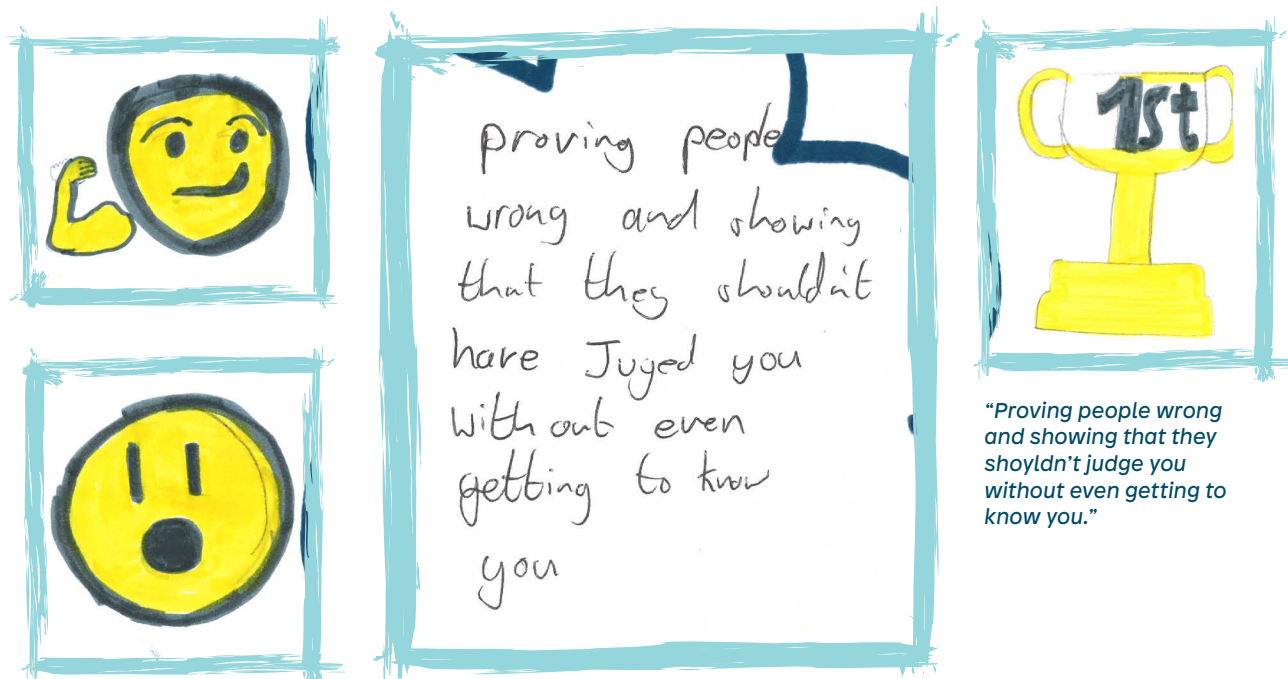 proving people
wrong and showing
that they shouldn't
have Juged you
without even
getting to know
you
1st
“Proving people wrong
and showing that they
shoyldn’t judge you
without even getting to
know you.”